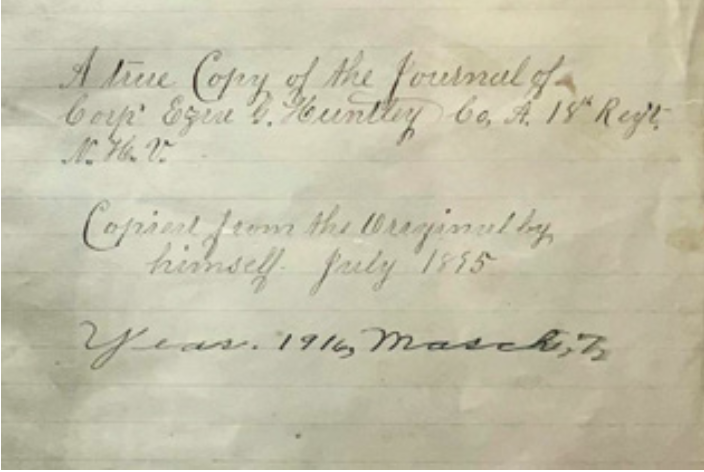 A true Copy of the Journal of
Corp. Ezra G. Huntley Co, A. 18th Regt.
N. H. V.
Copied from the Original by
himself. July 1895
Year. 1916, March, 7,